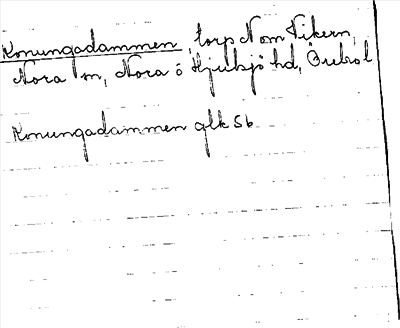 Konungadammen, torp N om Vikern,
Nora sn, Nora o Hjulsjö hd, Örebro l
Konungadammen glk 56